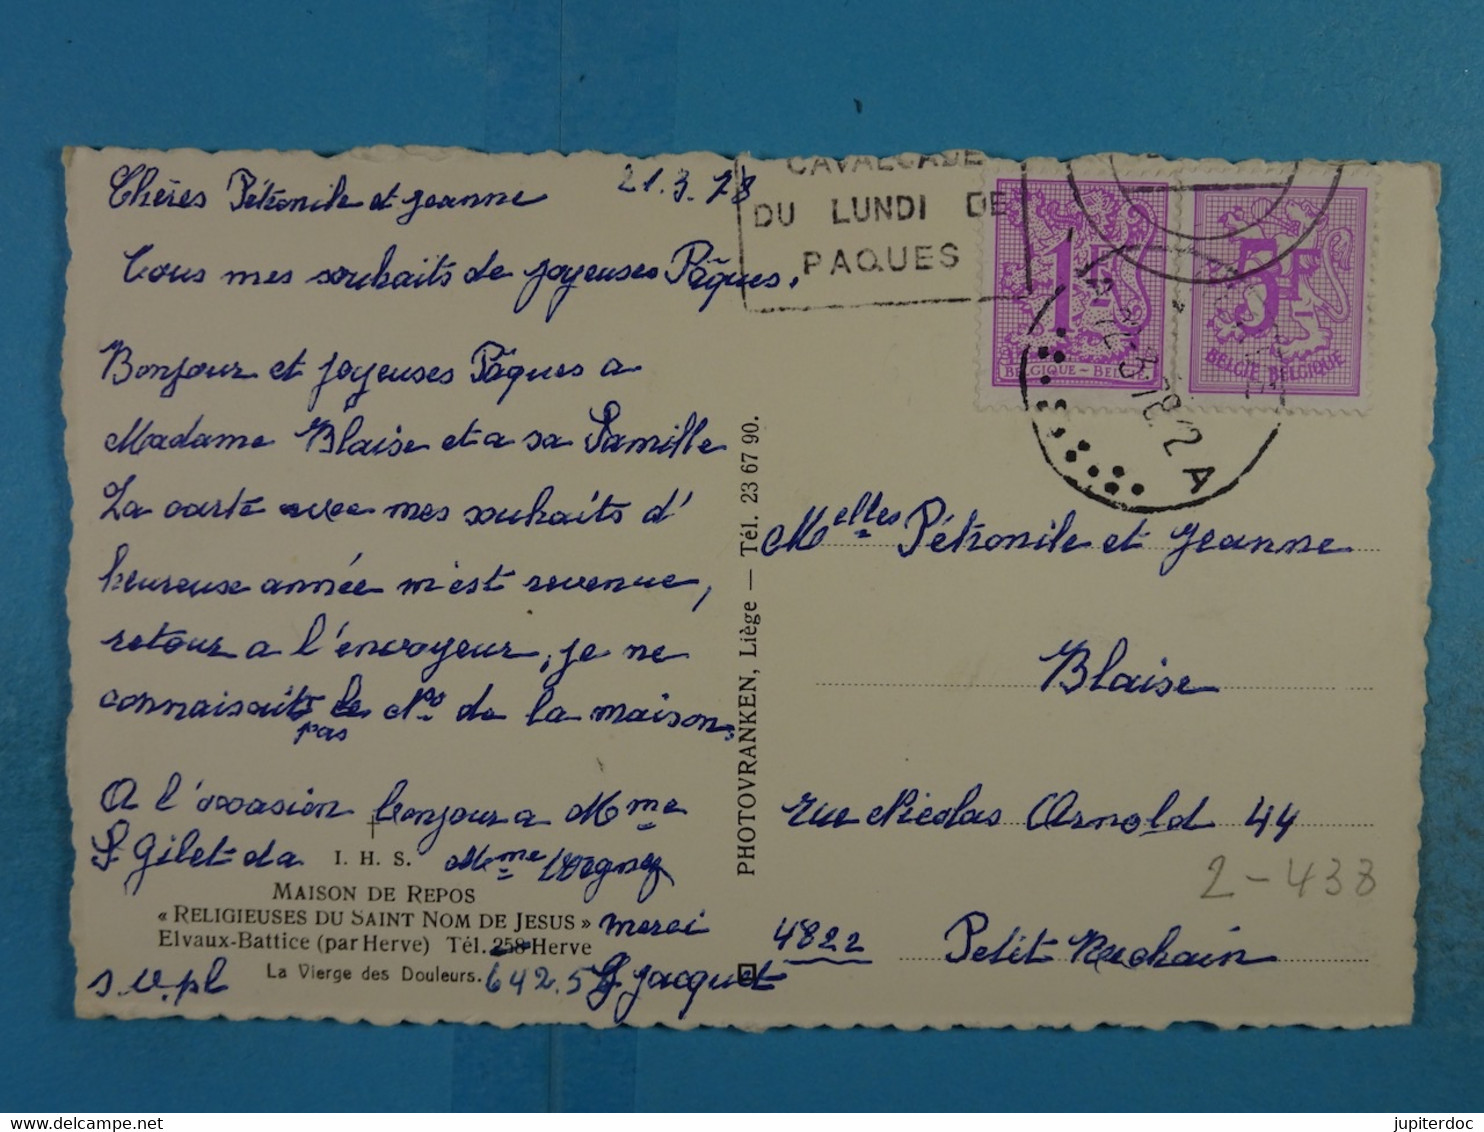 Chères Pétronile et Jeanne 21.3.78
Tous mes souhaits de joyeuses Pâques.
Bonjour et joyeuses Pâques a
Madame Blaise et a sa Famille
La carte avec mes souhaits d'
heureuse année m'est revenue,
retour a l'envoyeur, je ne
connaisait pas le No de la maison.
A l'occasion bonjour a Mme
Gilet da Mme
merci
s.v.pl
I. H. S.
MAISON DE REPOS
« RELIGIEUSES DU SAINT NOM DE JESUS »
Elvaux-Battice (par Herve) Tél. 258 Herve
La Vierge des Douleurs. 642.5
Jacquet
PHOTOVRANKEN, Liège — Tél. 23 67 90.
CAVALCADE
DU LUNDI DE
PAQUES
1F
BELGIQUE - BEL
5F
BELGIE BELGIQUE
22-3-78 12 A
Melles Pétronile et Jeanne
Blaise
rue Nicolas Arnold 44
2-438
4822 Petit Rechain
jupiterdoc